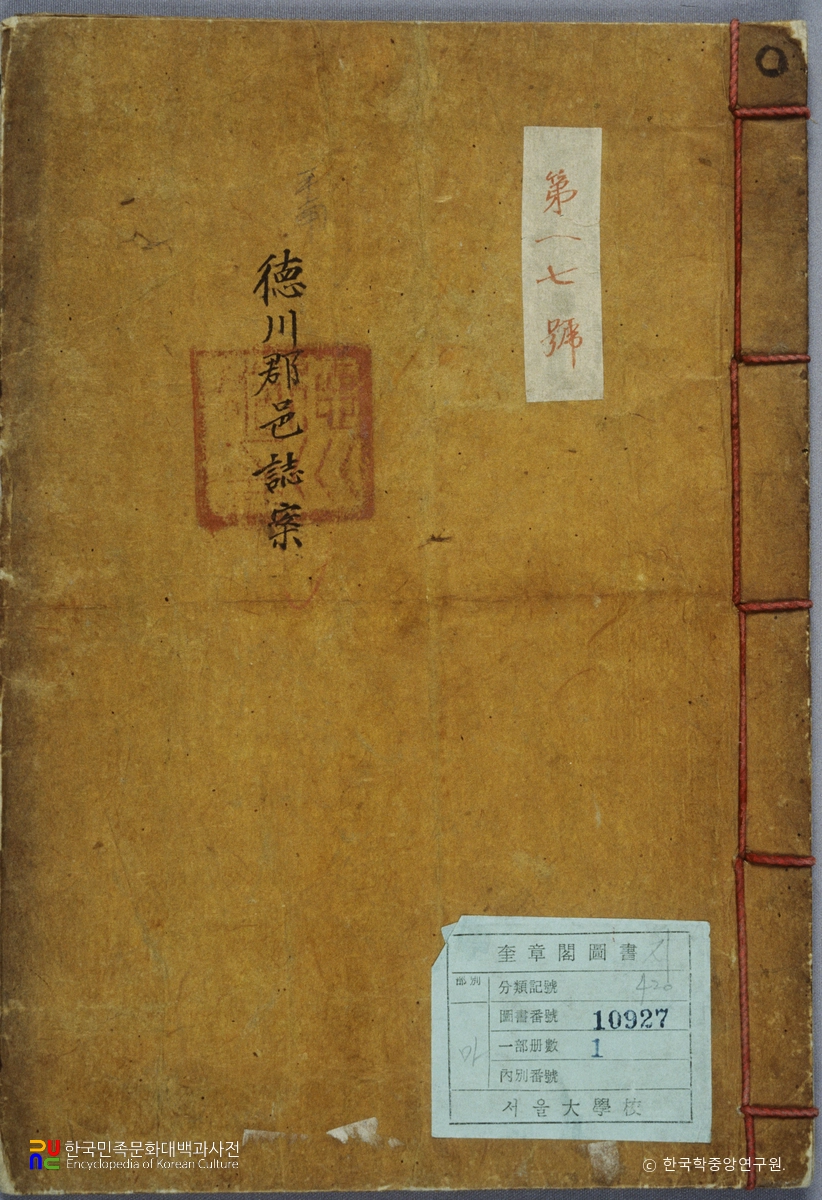 第一七號
德川郡邑誌案
奎章閣圖書
部別
分類記號 420
圖書番號 10927
一部册數 1
內別番號
서울大學校
한국민족문화대백과사전
Encyclopedia of Korean Culture
© 한국학중앙연구원.